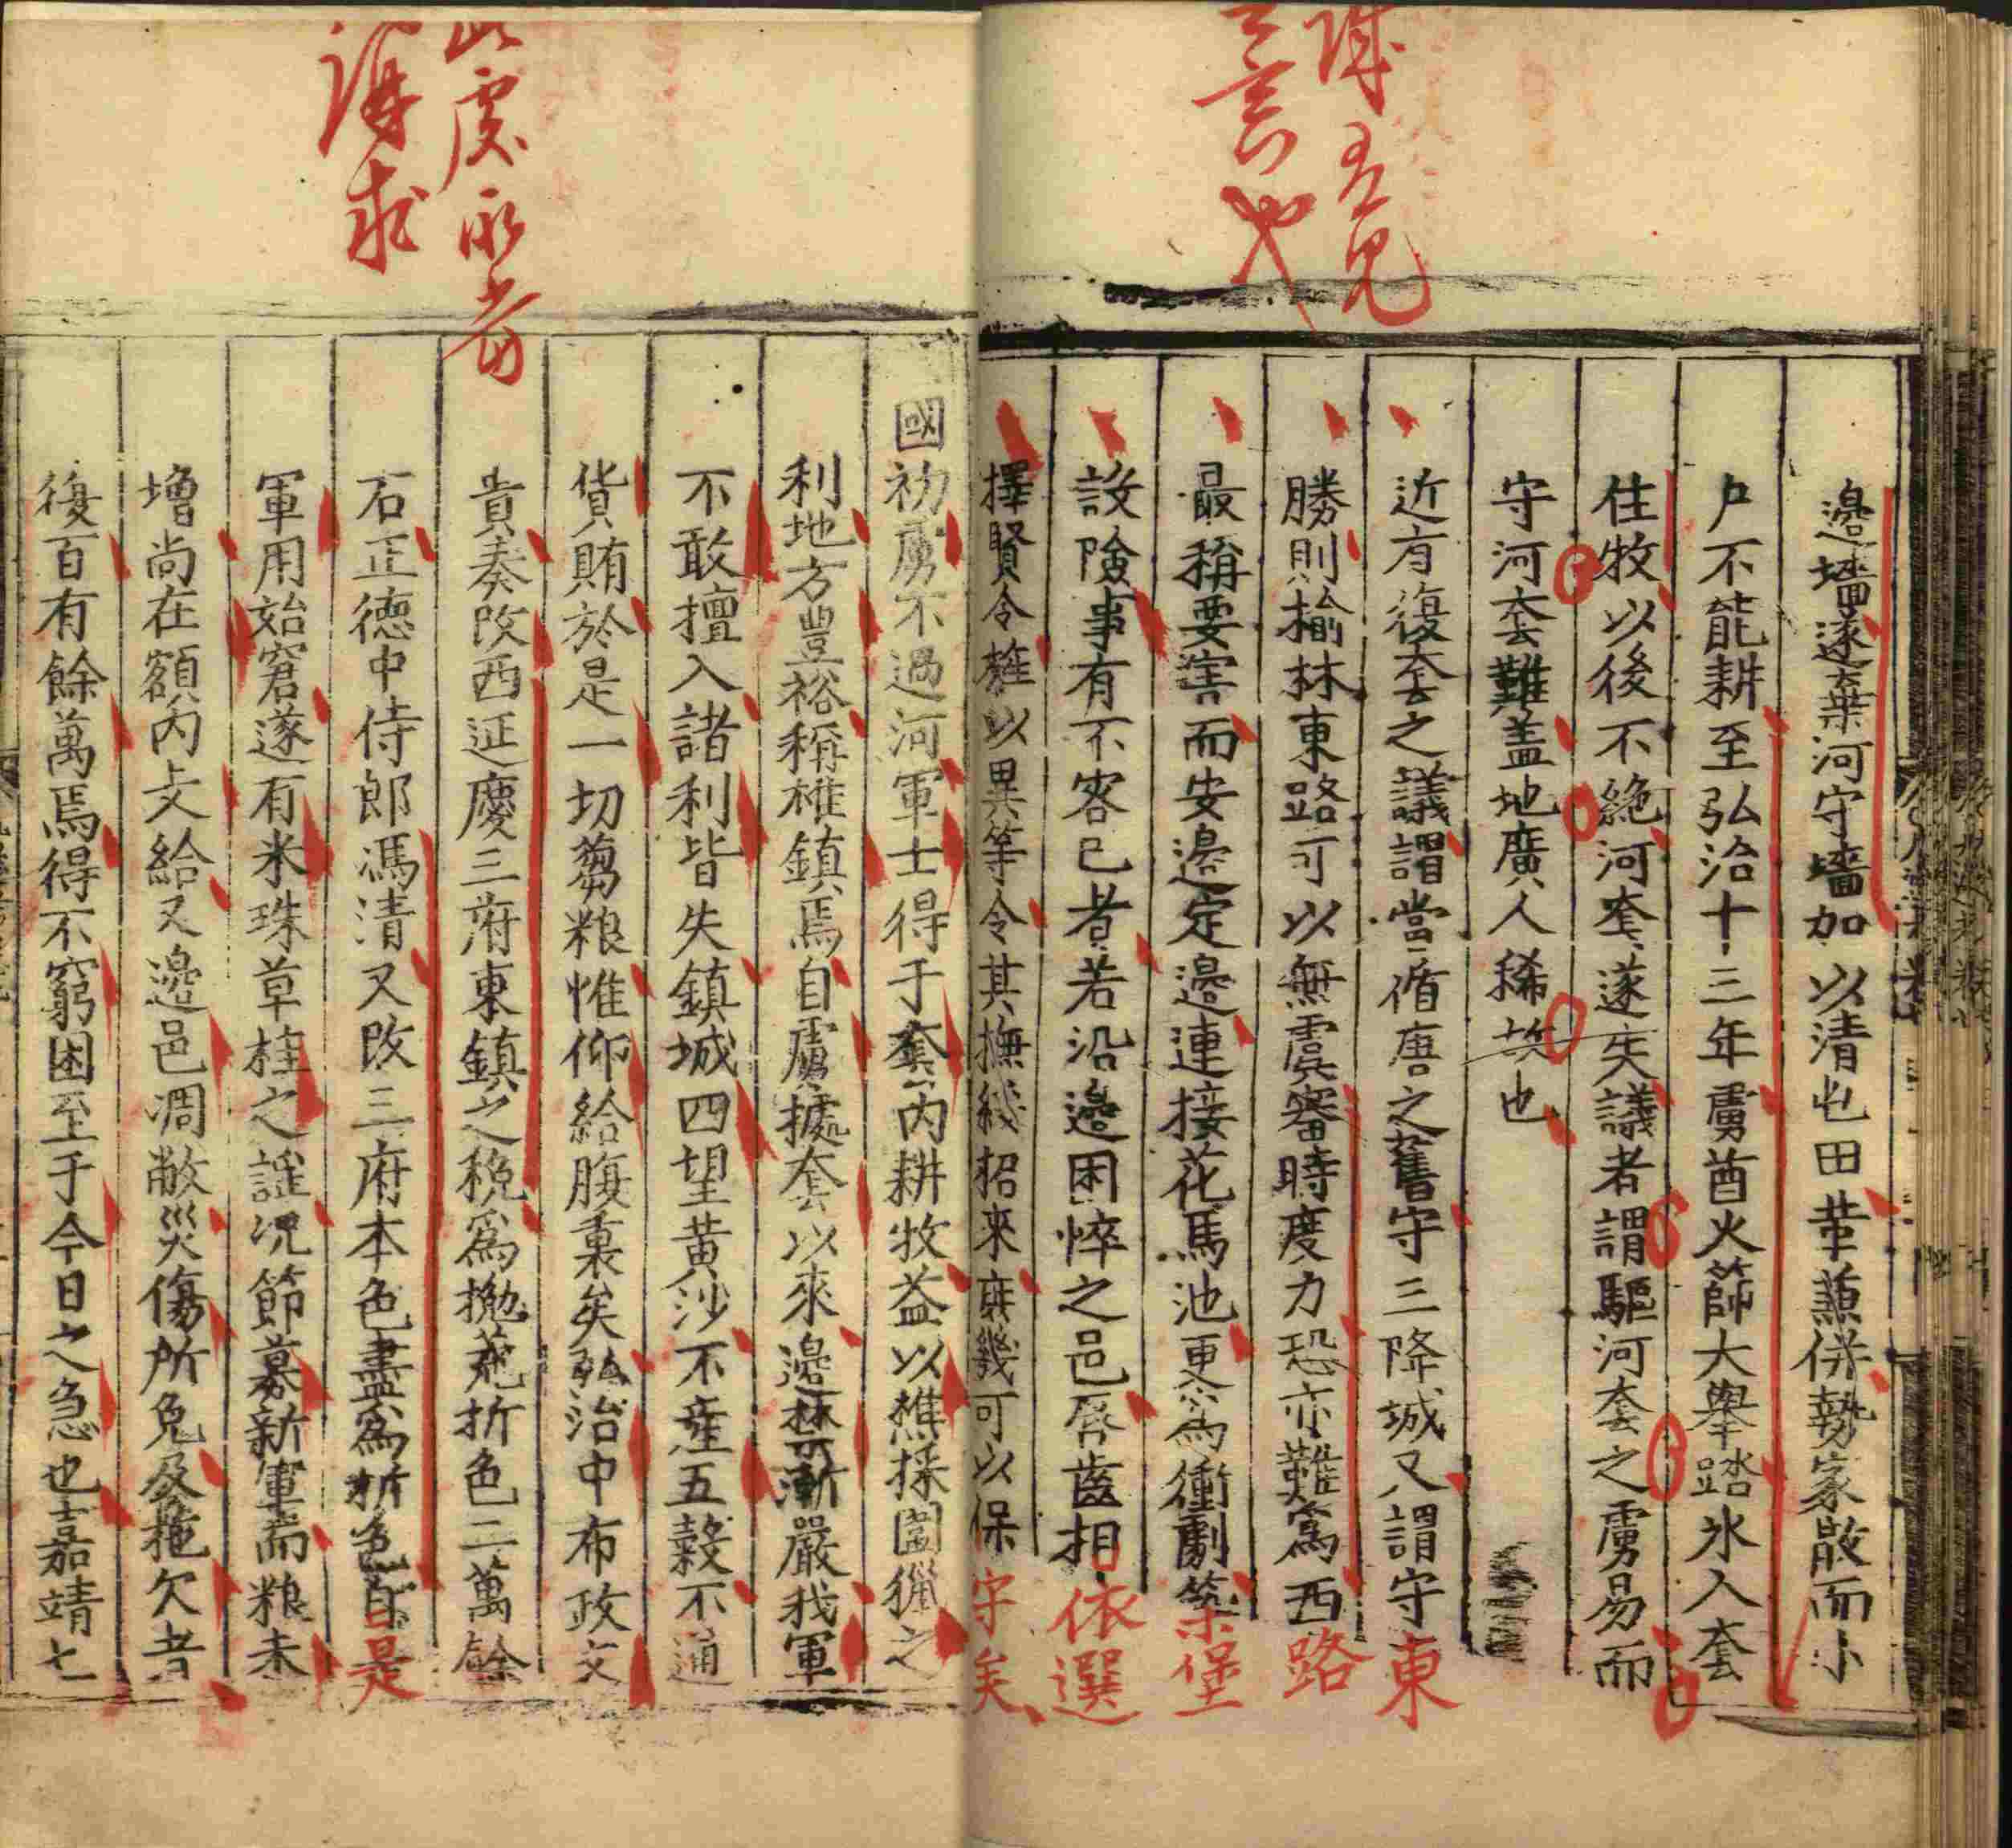 誅玄見
之言也
邊墻遂棄河守墻加以清屯田革兼併勢家散而小
户不能耕至弘治十三年虜酋火篩大舉踏氷入套
住牧以後不絶河套遂失議者謂驅河套之虜易而
守河套難盖地廣人稀故也
近有復套之議謂當循唐之舊守三降城又謂守東
勝則榆林東路可以無虞審時度力恐亦難爲西路
最稱要害而安邊定邊連接花馬池更爲衝劇築堡
設險事有不容已者若沿邊困悴之邑唇齒相依選
擇賢令旌以異等令其撫綏招來庶幾可以保守矣
此處永當
講求
國初虜不過河軍士得于套内耕牧益以樵採圍獵之
利地方豊裕稱雄鎮焉自虜據套以來邊禁漸嚴我軍
不敢擅入諸利皆失鎮城四望黄沙不產五穀不通
貨賄於是一切芻粮惟仰給腹裏矣弘治中布政文
貴奏改西延慶三府東鎮之税爲抛荒折色二萬餘
石正德中侍郎馮清又改三府本色盡爲折色自是
軍用始窘遂有米珠草桂之謡况節募新軍而粮未
增尚在額内支給又邊邑凋敝災傷所免及拖欠者
復百有餘萬焉得不窮困至于今日之急也嘉靖七